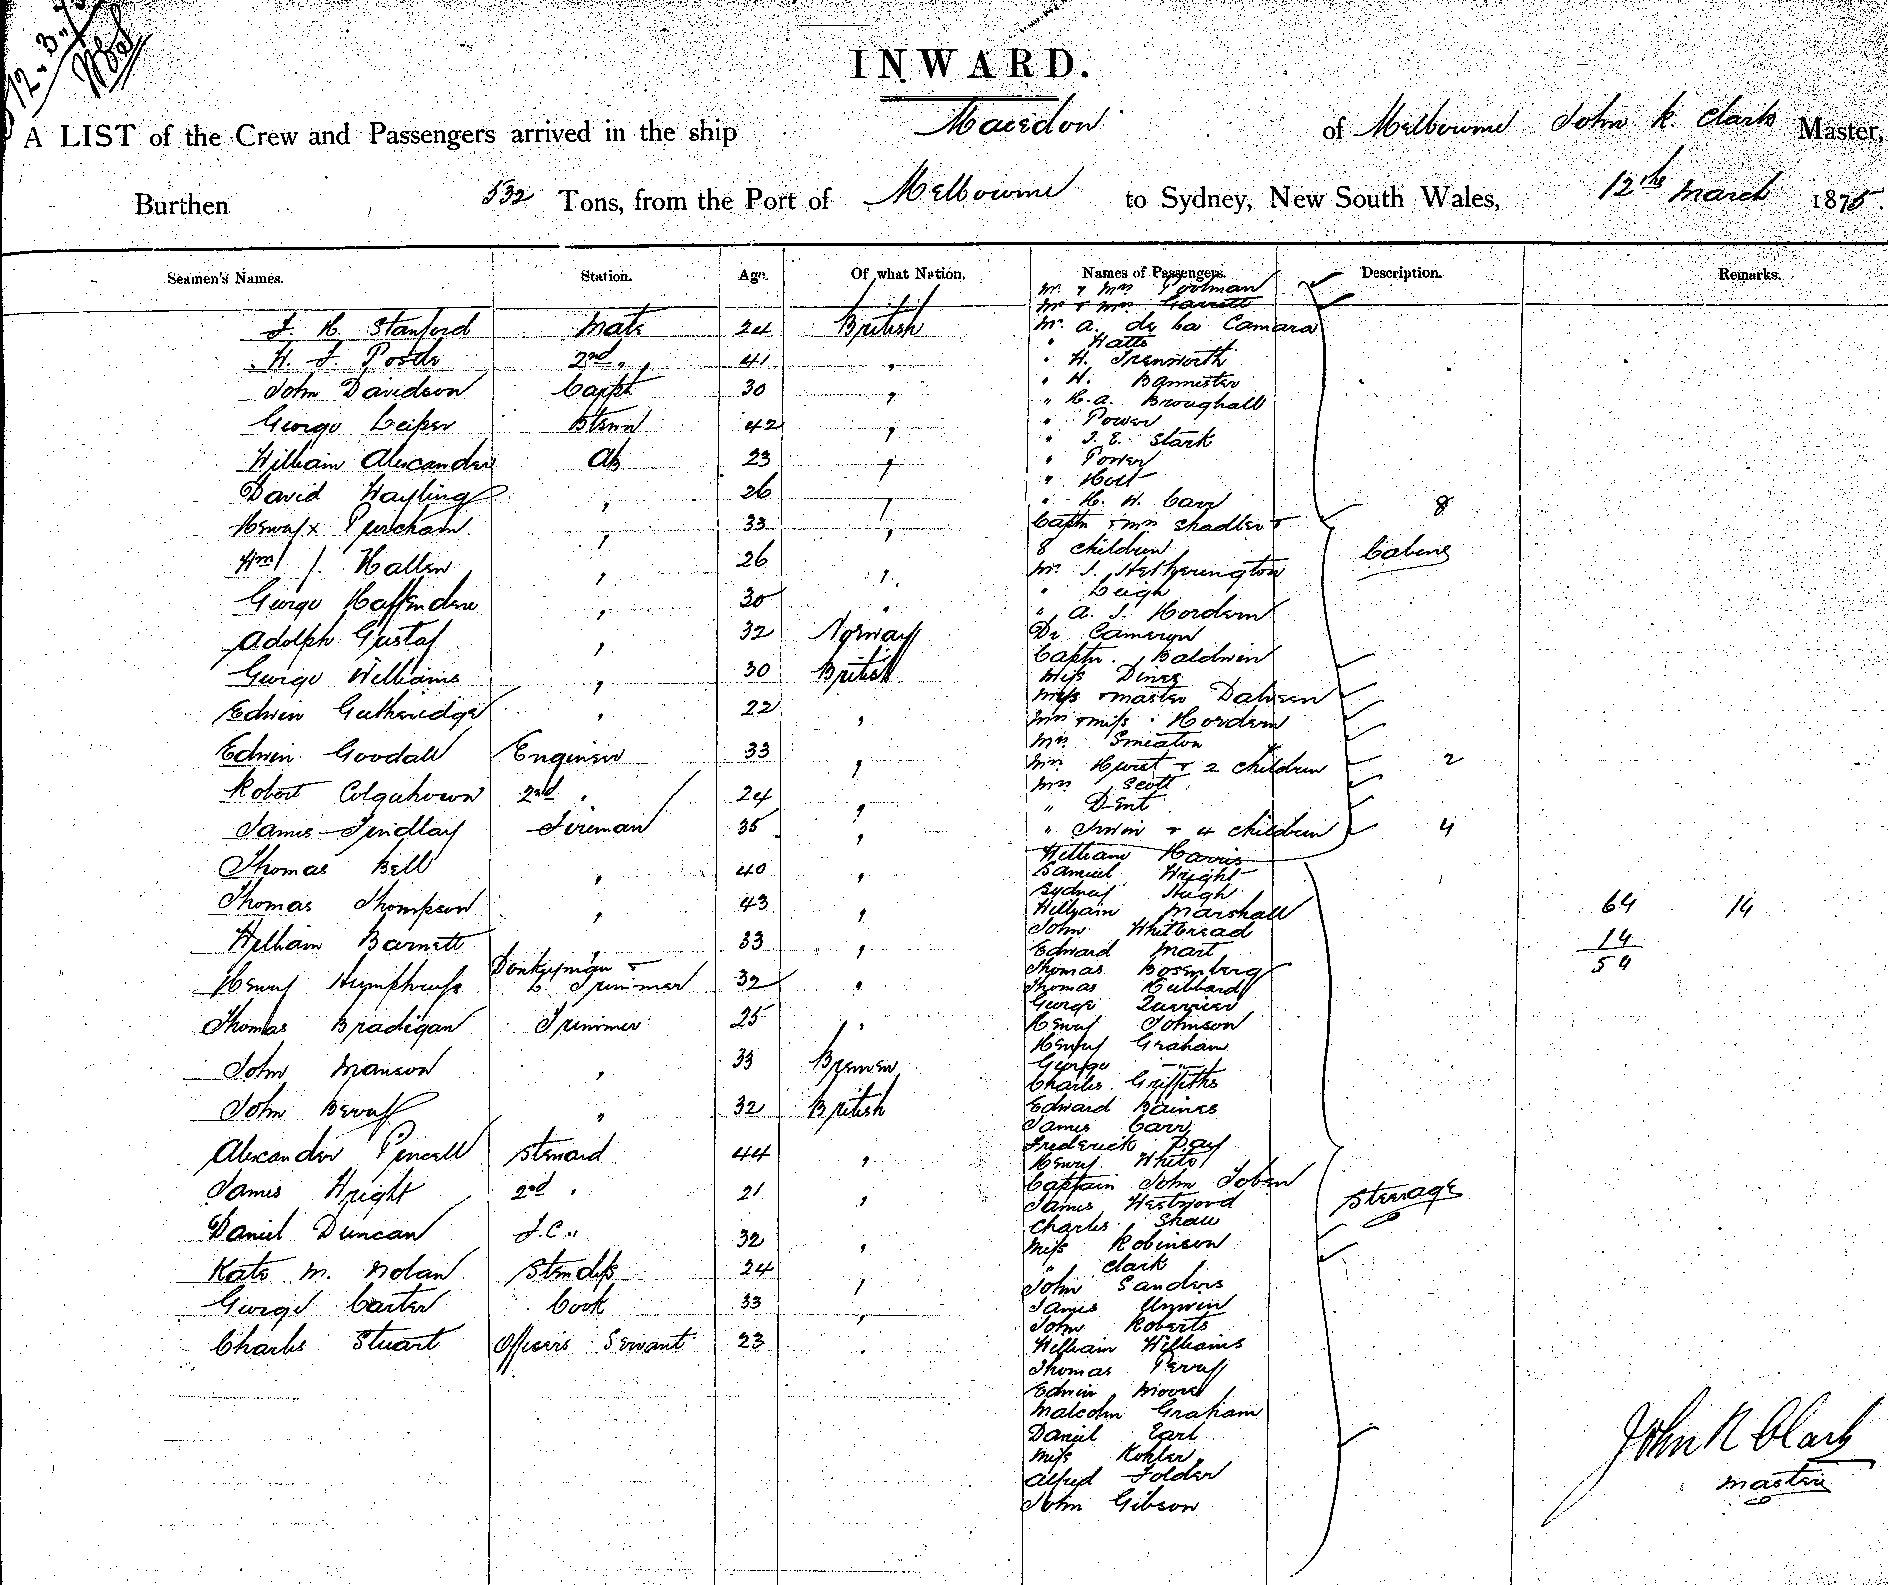 12.3.75
INWARD.
A LIST of the Crew and Passengers arrived in the ship Macedon of Melbourne John K. Clark Master,
Burthen 532 Tons, from the Port of Melbourne to Sydney, New South Wales, 12th March 1875.
Seamen's Names. Station. Age. Of what Nation. Names of Passengers. Description. Remarks.
Mr. & Mrs Poolman
Mr & Mrs. Garrett
J. H. Stanford Mate 24 British Mr. A. de La Camara
" Watts
W. J. Poode 2nd " 41 " " H. Trenworth
John Davidson Carpt 30 " " H. Bannister
" H. A. Broughall
George Leiper Btswn 42 " " Power
" J. E. Stark
William Alexander Ab 23 " " Power
David Wayling " 26 " " Holt
" H. W. Carr 8
Henry Purcham " 33 " Captn & Mrs Shadler &
8 children Cabins
Wm J. Hallen " 26 " Mr. J. Hetherington
" Leigh
George Haffendene " 30 " " A. J. Hordern
Adolph Gustaf " 32 Norway Dr Cameron
Captn. Baldwin
George Williams " 30 British Miss Dines
Miss & Master Dalveen
Edwin Gutheridge " 22 " Mrs & Miss Hordern
Mrs. Smeaton
Edwin Goodall Engineer 33 " Mrs Hurst & 2 children 2
Robert Colquhoun 2nd " 24 " Mrs Scott
" Dent
James Findlay Fireman 35 " " Irwin & 4 children 4
William Harris
Thomas Bell " 40 " Samuel Wright
Sydney Hugh
Thomas Thompson " 43 " William Marshall 64 14
John Whitbread
William Barnett " 33 " Edward Mart 14
Thomas Bosemberg 50
Henry Humphreys Donkeyman & Trimmer 32 " Thomas Hubbard
George Querrier
Thomas Bradigan Trimmer 25 " Henry Johnson
Henry Graham
John Manson " 33 Bremen George "
Charles Griffiths
John Berry " 32 British Edward Baines
James Carr
Frederick Day
Alexander Pencell Steward 44 " Henry White
Captain John Tobin
James Wright 2nd " 21 " James Westwood Steerage
Charles Shaw
Daniel Duncan F.C. " 32 " Miss Robinson
Kate M. Nolan Stewdss 24 " " Clark
John Sanders
George Carter Cook 33 " James Unwin
John Roberts
Charles Stuart Officers Servant 23 " William Williams
Thomas Perry
Edwin Moore
Malcolm Graham
Daniel Earl
Miss Kohler
Alfred Folder
John Gibson
John K Clark
Master